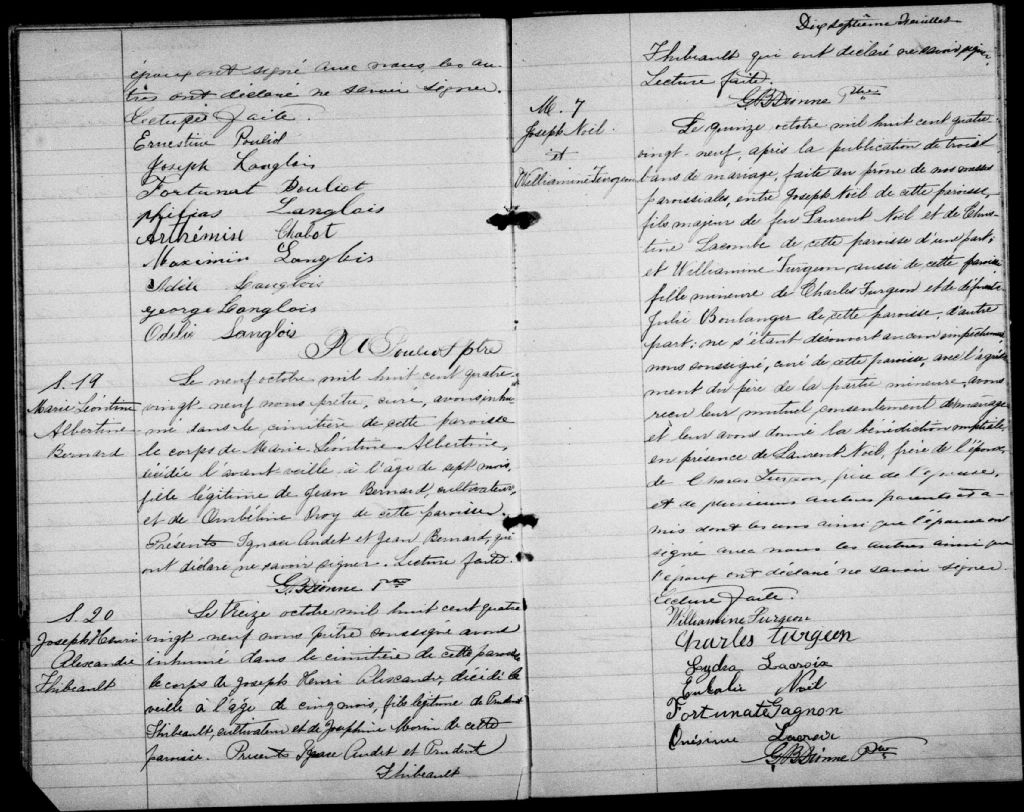 époux ont signé avec nous, les au-
tres ont déclaré ne savoir signer.
Lecture faite.
Ernestine Pouliot
Joseph Langlois
Fortunat Pouliot
philias Langlais
Arthémise Chabot
Maximin Langlois
Adèle Langlois
george Langlois
Odélie Langlois
Pouliot ptre
S. 19
Marie Léontine
Albertine
Bernard
Le neuf octobre mil huit cent quatre-
vingt-neuf nous prêtre, curé, avons inhu-
mé dans le cimetière de cette paroisse
le corps de Marie Léontine Albertine,
décédée l'avant veille à l'âge de sept mois,
fille légitime de Jean Bernard, cultivateur,
et de Ombéline Roy de cette paroisse.
Présents Ignace Audet et Jean Bernard, qui
ont déclaré ne savoir signer. Lecture faite.
G. Dionne Ptre
S. 20
Joseph Henri
Alexandre
Thibeault
Le treize octobre mil huit cent quatre
vingt-neuf nous prêtre soussigné avons
inhumé dans le cimetière de cette paroisse
le corps de Joseph Henri Alexandre, décédé la
veille à l'âge de cinq mois, fils légitime de Prudent
Thibeault, cultivateur et de Joséphine Morin de cette
paroisse. Présents Ignace Audet et Prudent
Thibeault
Dix septième Feuillet
Thibeault qui ont déclaré ne savoir signer.
Lecture faite.
G B Dionne Ptre
M. 7
Joseph Noël.
et
Williamine Turgeon
Le quinze octobre mil huit cent quatre-
vingt-neuf, après la publication de trois
bans de mariage, faite au prône de nos messes
paroissiales, entre Joseph Noël de cette paroisse,
fils majeur de feu Laurent Noël et de Chris-
tine Lacombe de cette paroisse d'une part;
et Williamine Turgeon, aussi de cette paroisse
fille mineure de Charles Turgeon et de défunte
Julie Boulanger de cette paroisse, d'autre
part; ne s'étant découvert aucun empêchement
nous soussigné, curé de cette paroisse, avec l'agré-
ment du père de la partie mineure, avons
reçu leur mutuel consentement de mariage
et leur avons donné la bénédiction nuptiale
en présence de Laurent Noël, frère de l'époux,
de Charles Turgeon, père de l'épouse,
et de plusieurs autres parents et a-
mis dont les uns ainsi que l'épouse ont
signé avec nous les autres ainsi que
l'époux ont déclaré ne savoir signer.
Lecture faite.
Williamine Turgeon
Charles turgeon
Lydia Lacroix
Eulalie Noël
Fortunate Gagnon
Onésime Lacroix
G B Dionne Ptre